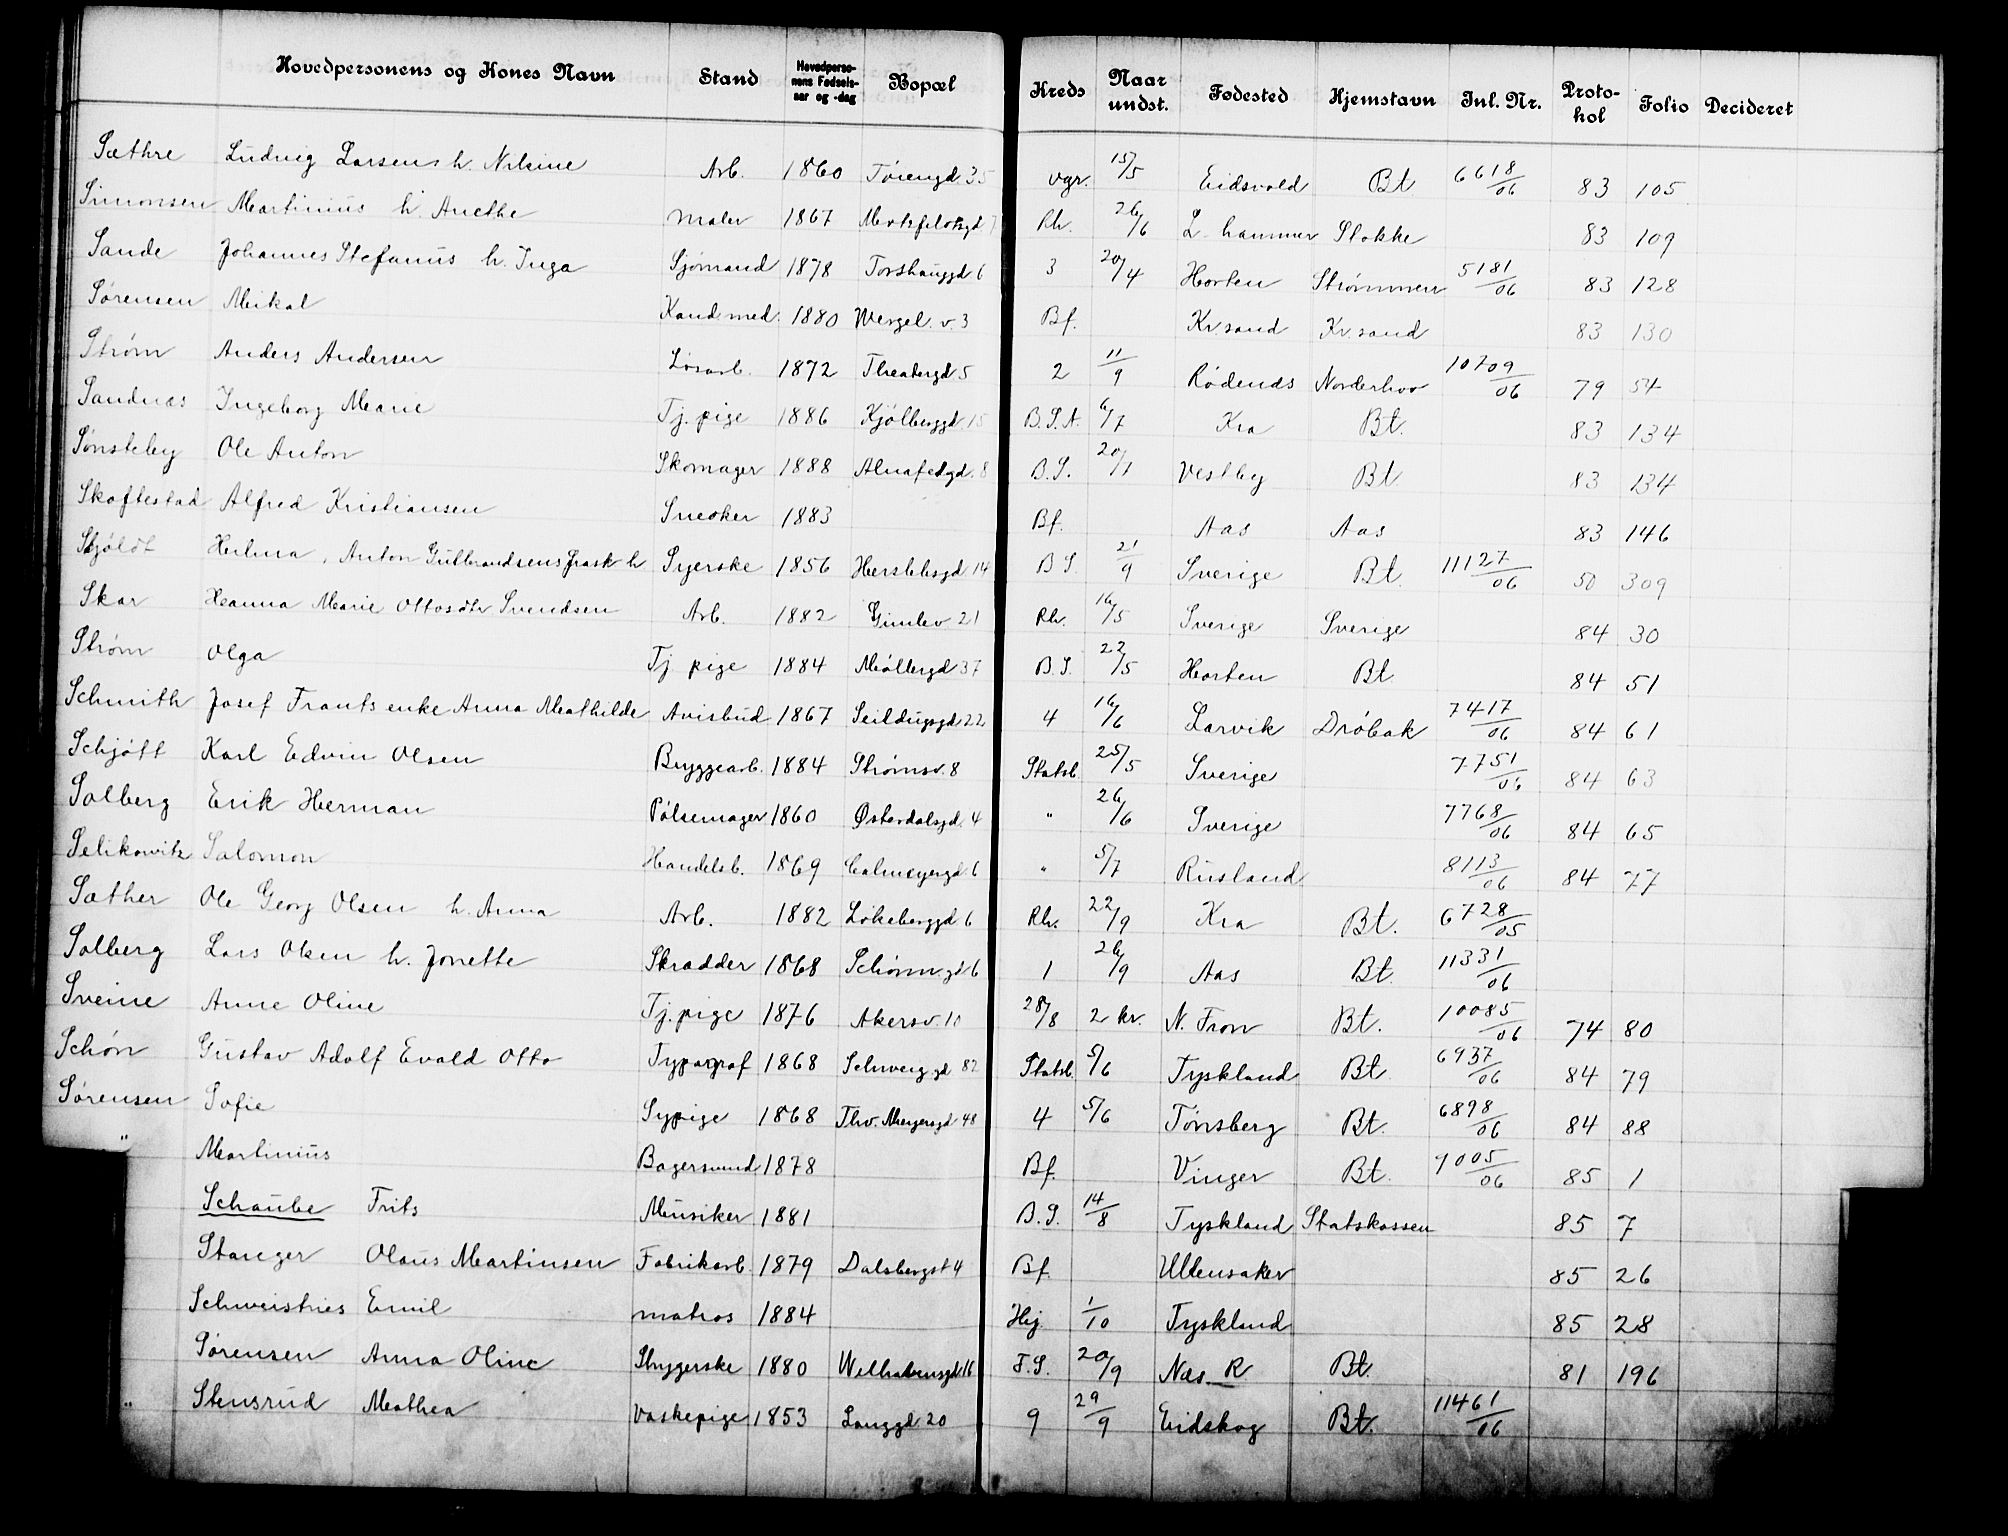 Hovedpersonens og Kones Navn Stand Hovedperso-nens Fødsels-aar og -dag Bopæl Kreds Naar undst. Fødested Hjemstavn Inl. Nr. Proto-kol Folio Decideret
Sæthre Ludvig Larsen h. Nilsine Arb. 1860 Tøiengd. 35 Vgr. 15/5 Eidsvold Bt 6618/06 83 105
Simonsen Martinius h. Anethe Maler 1867 Markfelotsgd 7 Rh. 26/6 L. hammer Stokke 83 109
Sande Johannes Stefanus h. Inga Sjømand 1878 Torshauggd 6 3 20/4 Horten Strømmen 5181/06 83 128
Sørensen Mikal Kand. med. 1880 Wergel. v. 3 Bf. Kr.sand Kr.sand 83 130
Strøm Anders Andersen Løsarb. 1872 Theatergd 5 2 11/9 Rødenæs Norderhov 10709/06 79 54
Sandnæs Ingeborg Marie Tj. pige 1886 Kjølberggd 15 B.S.A. 6/7 Kra Bt. 83 134
Sønsteby Ole Anton Skomager 1888 Alnafedgd. 8 B.S. 20/1 Vestby Bt 83 134
Skoftestad Alfred Kristiansen Snedker 1883 Bf. Aas Aas 83 146
Skjøldt Hulma, Anton Gulbrandsens frask h Syerske 1856 Herslebsgd 14 B S. 21/9 Sverige Bt. 11127/06 50 309
Skar Hanna Marie Ottosdtr Svendsen Arb. 1882 Gimlev 21 Rh. 16/5 Sverige Sverige 84 30
Strøm Olga Tj. pige 1884 Møllergd 37 B.S. 22/5 Horten Bt. 84 51
Schmith Josef Frants enke Anna Mathilde Avisbud 1867 Seildugsgd 22 4 16/6 Larvik Drøbak 7417/06 84 61
Schjøtt Karl Edvin Olsen Bryggearb. 1884 Strømsv. 8 Statsb. 25/5 Sverige 7751/06 84 63
Solberg Erik Herman Pølsemager 1860 Østerdalsgd. 4 " 26/6 Sverige 7768/06 84 65
Selikowitz Salomon Handelsb. 1869 Calmeyergd. 6 " 5/7 Rusland 8113/06 84 77
Sæther Ole Georg Olsen h. Anna Arb. 1882 Løkeberggd 6 Rh. 22/9 Kra Bt. 6728/05
Solberg Lars Olsen h. Jonette Skrædder 1868 Schønn.gd 6 1 26/9 Aas Bt. 11331/06
Sveine Anne Oline Tj. pige 1876 Akersv. 10 28/8 2 kr. N. Fron Bt. 10085/06 74 80
Schön Gustav Adolf Evald Otto Typograf 1868 Schweig.gd 82 Statsb. 5/6 Tyskland Bt 6937/06 84 79
Sørensen Sofie Sypige 1868 Thv. Meyersgd 48 4 5/6 Tønsberg Bt. 6898/06 84 88
" Martinius Bagersvend 1878 Bf. Vinger Bt. 7005/06 85 1
Schaube Frits Musiker 1881 B.S. 14/8 Tyskland Statskassen 85 7
Stanger Olaus Martinsen Fabrikarb. 1879 Dalsbergst 4 Bf. Ullensaker 85 26
Schweistries Emil matros 1884 Hej. 1/10 Tyskland 85 28
Sørensen Anna Oline Strygerske 1880 Welhavensgd 16 F.S. 20/9 Næs R Bt. 81 196
" Stensrud Mathea Vaskepige 1853 Langgd 20 9 29/9 Eidskog Bt. 11461/06